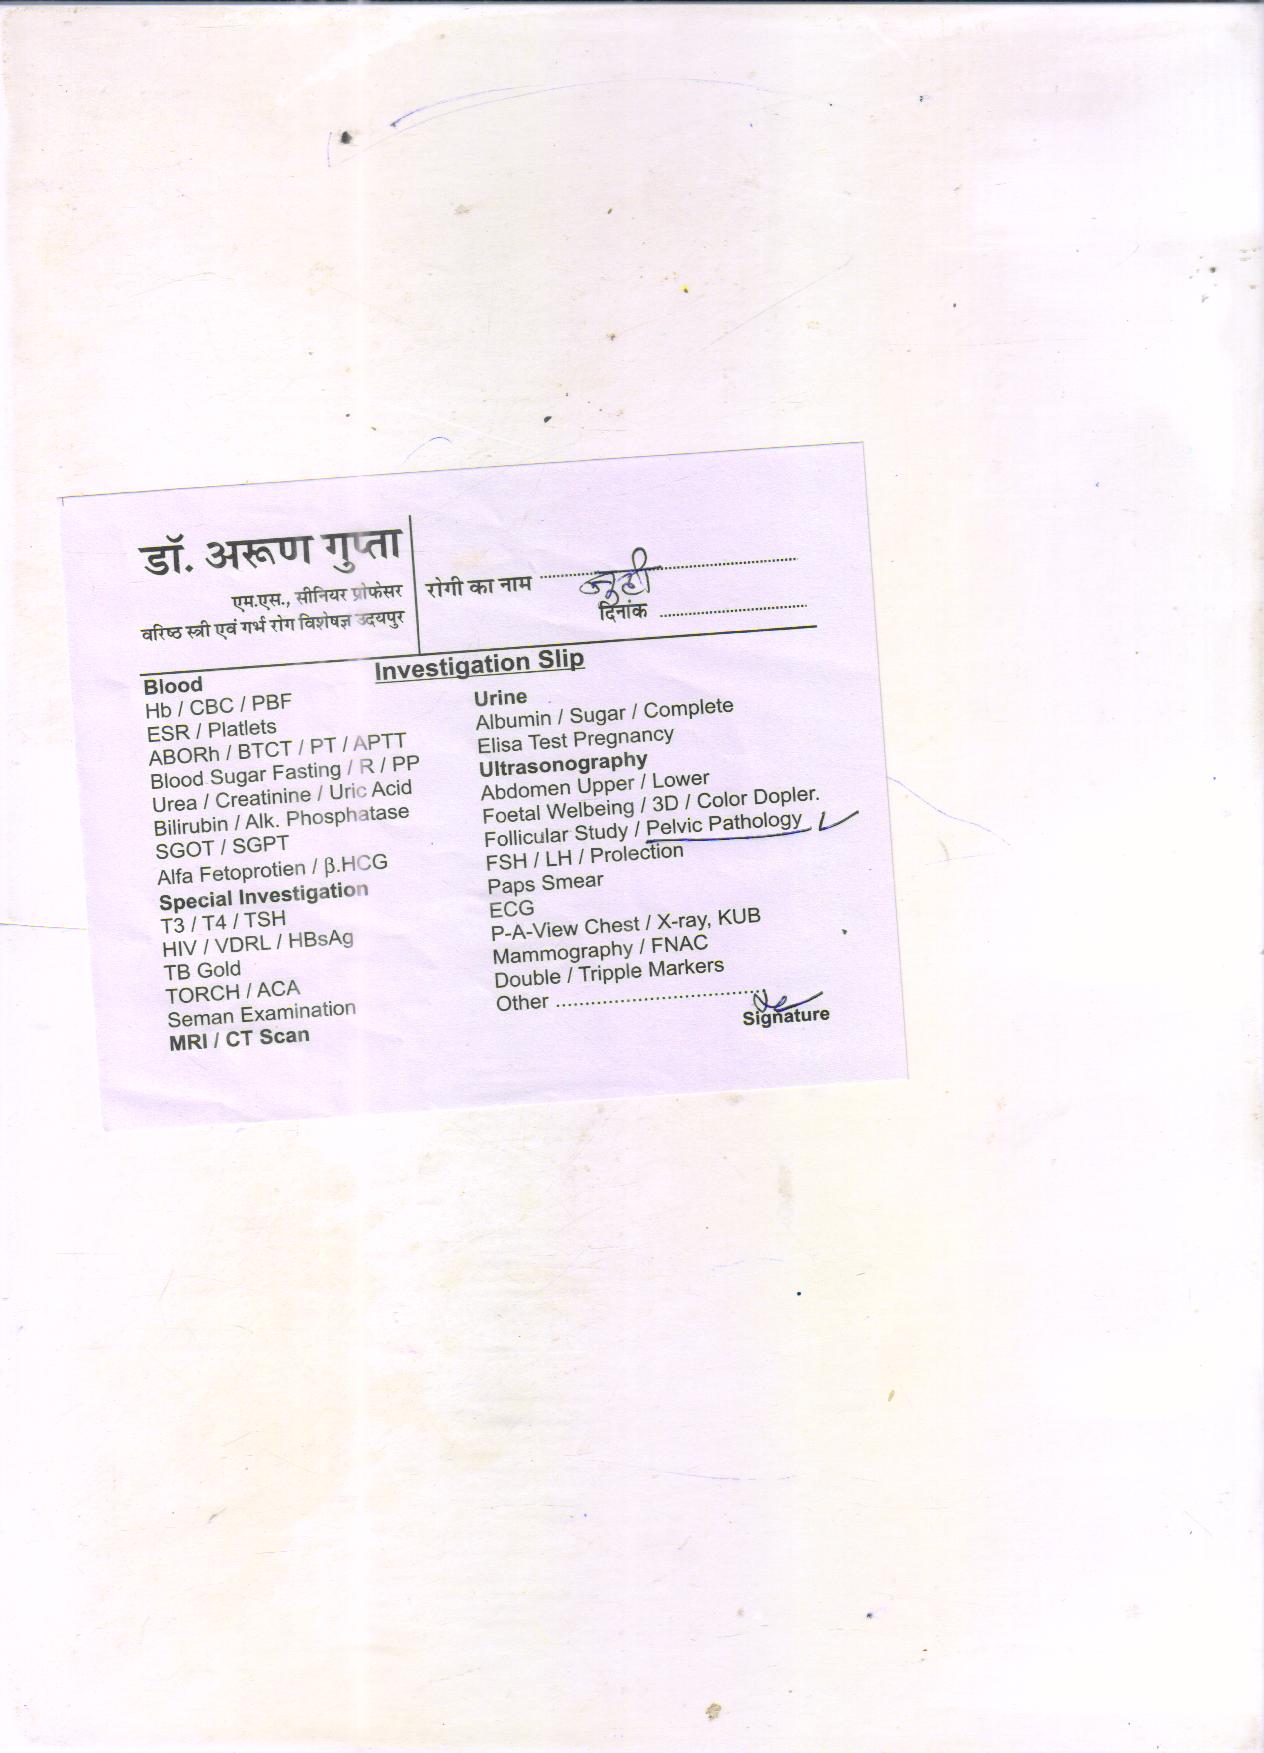 डॉ. अरूण गुप्ता
एम.एस., सीनियर प्रोफेसर
वरिष्ठ स्त्री एवं गर्भ रोग विशेषज्ञ उदयपुर
रोगी का नाम ........................
दिनांक ........................
Investigation Slip
Blood
Hb / CBC / PBF
ESR / Platlets
ABORh / BTCT / PT / APTT
Blood Sugar Fasting / R / PP
Urea / Creatinine / Uric Acid
Bilirubin / Alk. Phosphatase
SGOT / SGPT
Alfa Fetoprotien / β.HCG
Special Investigation
T3 / T4 / TSH
HIV / VDRL / HBsAg
TB Gold
TORCH / ACA
Seman Examination
MRI / CT Scan
Urine
Albumin / Sugar / Complete
Elisa Test Pregnancy
Ultrasonography
Abdomen Upper / Lower
Foetal Welbeing / 3D / Color Dopler.
Follicular Study / Pelvic Pathology ✓
FSH / LH / Prolection
Paps Smear
ECG
P-A-View Chest / X-ray, KUB
Mammography / FNAC
Double / Tripple Markers
Other ........................
Signature